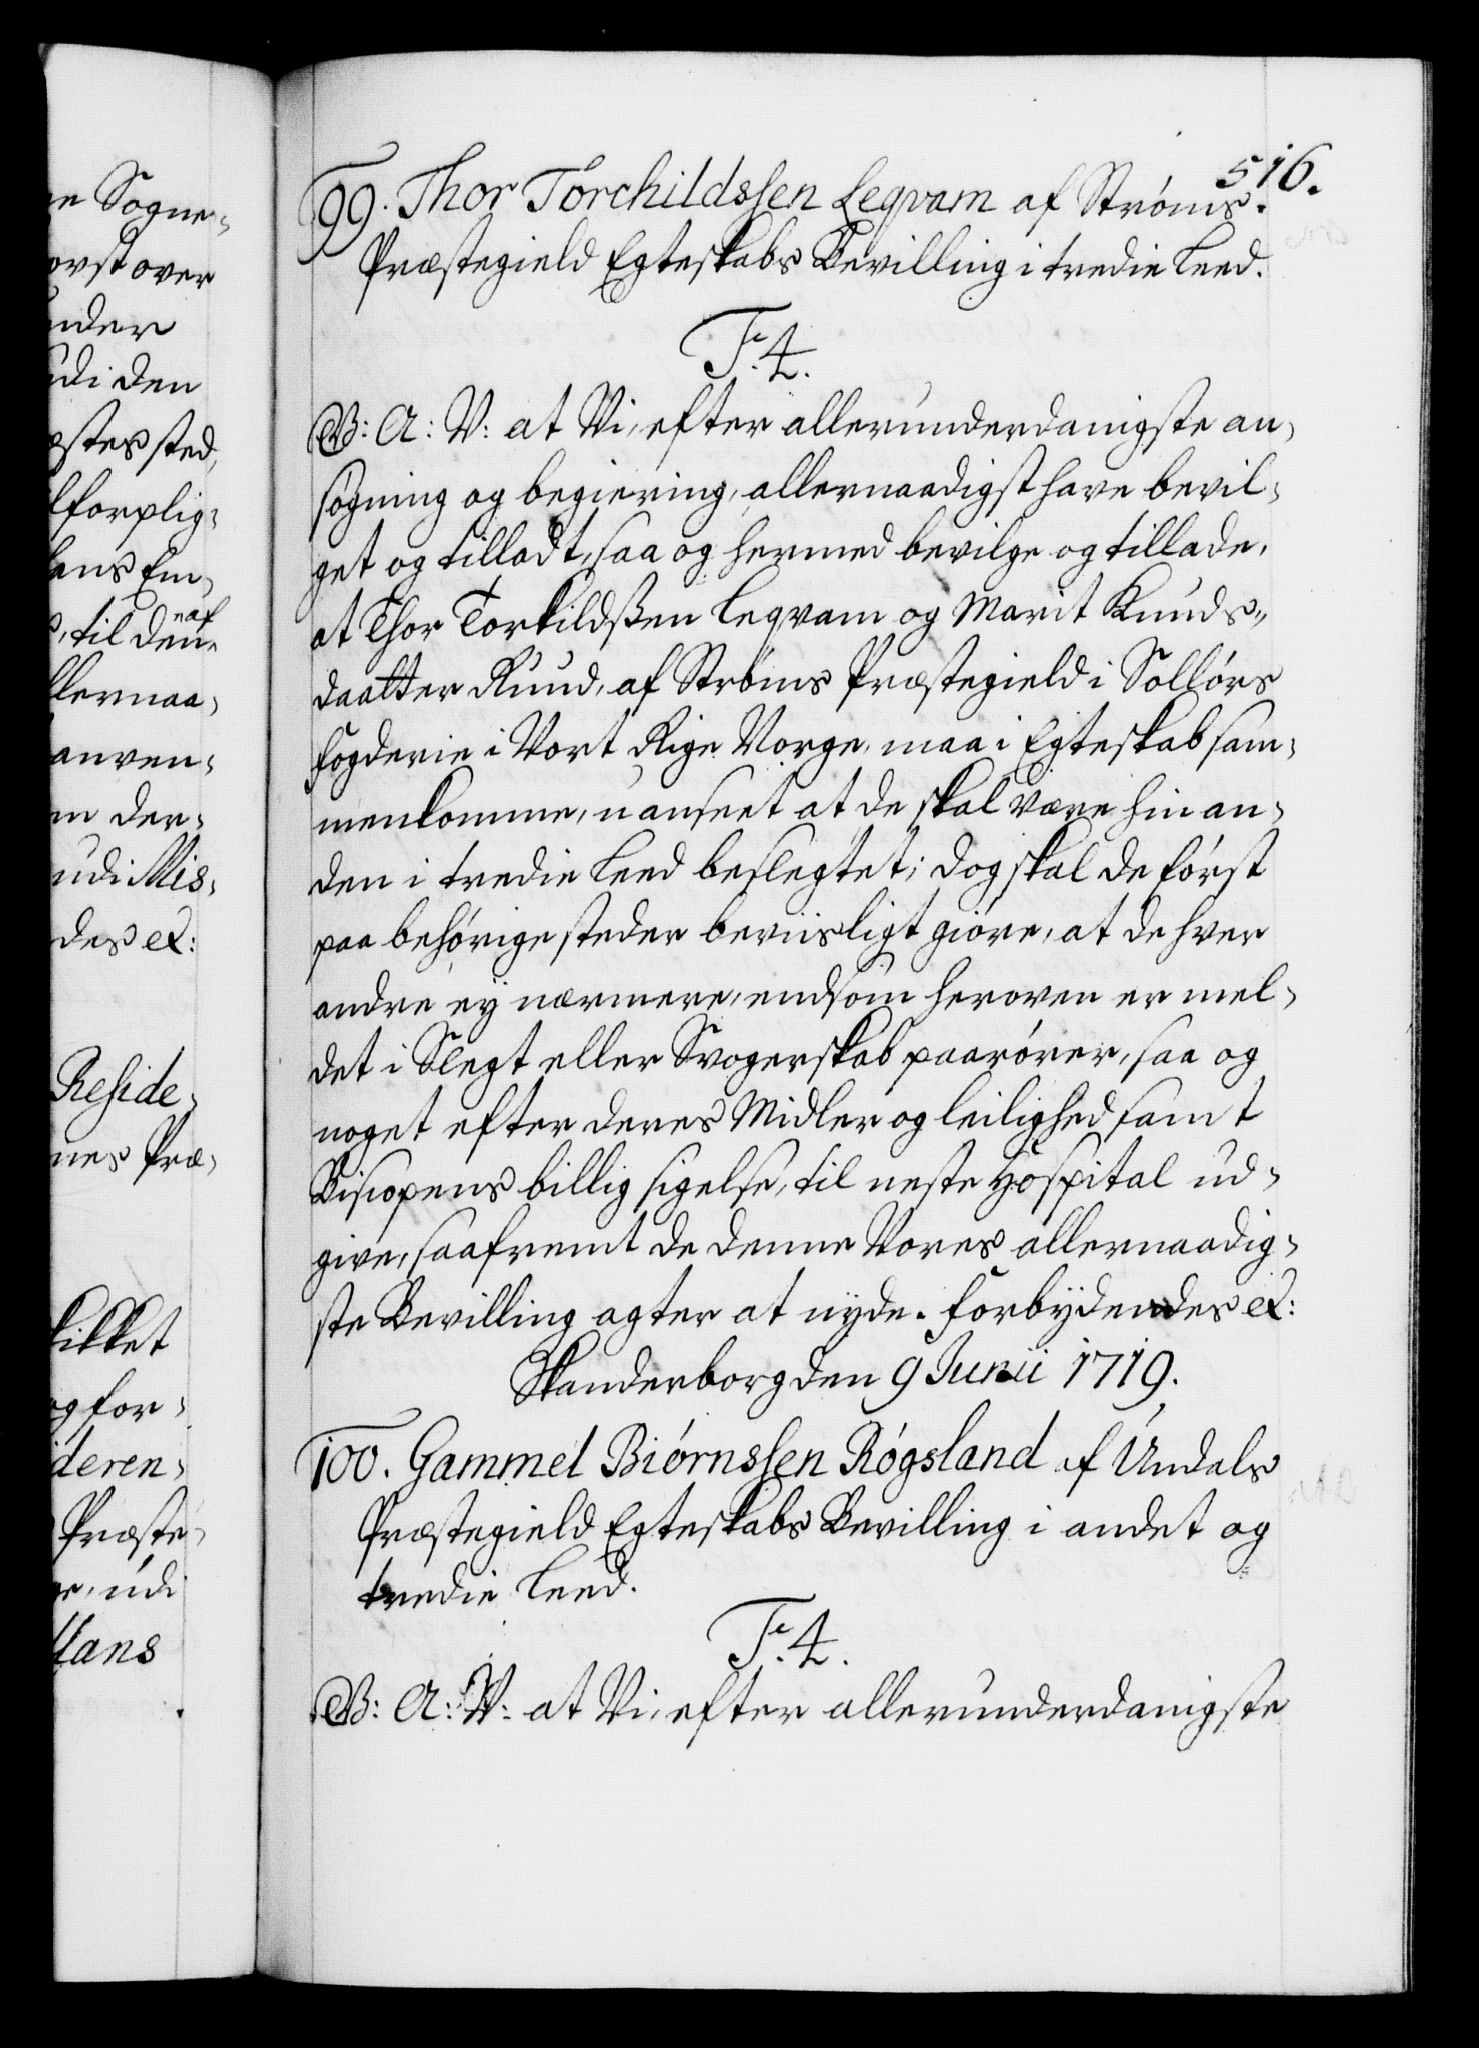 ne Sogne-
orst over
nder
udi den
estes sted,
lforplig-
hans Em-
til den
naf
llernaa-
anven-
m der-
udi Mis-
des &:
Reside-
nes Præ-
kikket
og for-
deren-
Præste-
udi
Hans
516.
99. Thor Torchildssen Leqvam af Strøms
Præstegield Egteskabs Bevilling i tredie Leed.
F. 4.
G: A: V: at Vi, efter allerunderdanigste an-
søgning og begiering, allernaadigst have bevil-
get og tilladt, saa og hermed bevilge og tillade,
at Thor Torkildßen Leqvam og Marit Knuds-
daatter Ruud, af Strøms Præstegield i Sollørs
Fogderie i Vort Rige Norge, maa i Egteskab sam-
menkomme, uanseet at de skal være hinan-
den i tredie Leed beslegtet; dog skal de først
paa behørige steder beviisligt giøre, at de hver
andre ey nærmere, endsom heroven er mel-
det i Slegt eller Svogerskab paarører, saa og
noget efter deres Midler og leilighed samt
Bisiopens billig sigelse, til neste Hospital ud-
give, saafremt de denne Vores allernaadig-
ste Bevilling agter at nyde. Forbydendes &:
Skanderborg den 9 Junii 1719.
100. Gammel Biørnssen Røgsland af Undals
Præstegield Egteskabs Bevilling i andet og
tredie Leed.
F. 4.
G: A: V: at Vi, efter allerunderdanigste